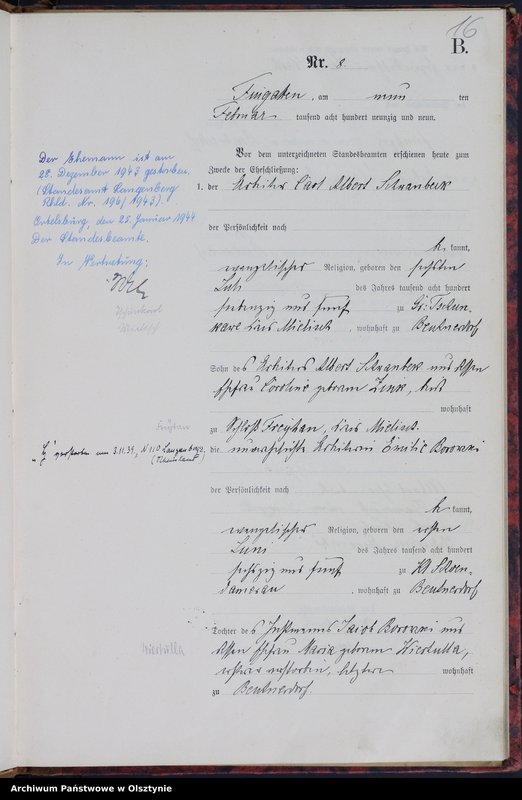 16
B.
Nr. 8.
am neun ten
Februar tausend acht hundert neunzig und neun.
Vor dem unterzeichneten Standesbeamten erschienen heute zum
Zwecke der Eheschließung:
1. der Arbeiter Carl Albert Schrambeck
der Persönlichkeit nach
be kannt,
evangelischer Religion, geboren den sechsten
Juli des Jahres tausend acht hundert
siebenzig und fünf zu Gr. Tschun-
kawe Kreis Militsch, wohnhaft zu Beutnerdorf
Sohn des Arbeiters Albert und dessen
Ehefrau Caroline geborenen
wohnhaft
zu Schloß Freyhan, Kreis Militsch.
die unverehelichte Arbeiterin Emilie Borowski
der Persönlichkeit nach
be kannt,
evangelischer Religion, geboren den ersten
Juni des Jahres tausend acht hundert
sechszig und fünf zu Kl. Schoen-
damerau, wohnhaft zu Beutnerdorf
Tochter des Instmanns Jacob Borowski und
dessen Ehefrau Maria geborenen
ersterer verstorben, letztere wohnhaft
zu Beutnerdorf.
Der Ehemann ist am
28. Dezember 1943 gestorben.
(Standesamt Langenberg
Rhld. Nr. 196/1943).
Ortelsburg, den 25. Januar 1944
Der Standesbeamte.
In Vertretung:
Militsch
Freyhan
gestorben am 3.11.39, N 110 Langenberg
(Rheinland)
Archiwum Państwowe w Olsztynie